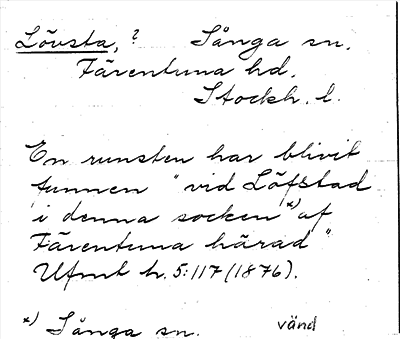 Lövsta, ? Sånga sn.
Färentuna hd.
Stockh. l.
En runsten har blivit
funnen "vid Löfstad
i denna socken *) af
Färentuna härad"
Ufmt h. 5:117 (1876).
*) Sånga sn. vänd